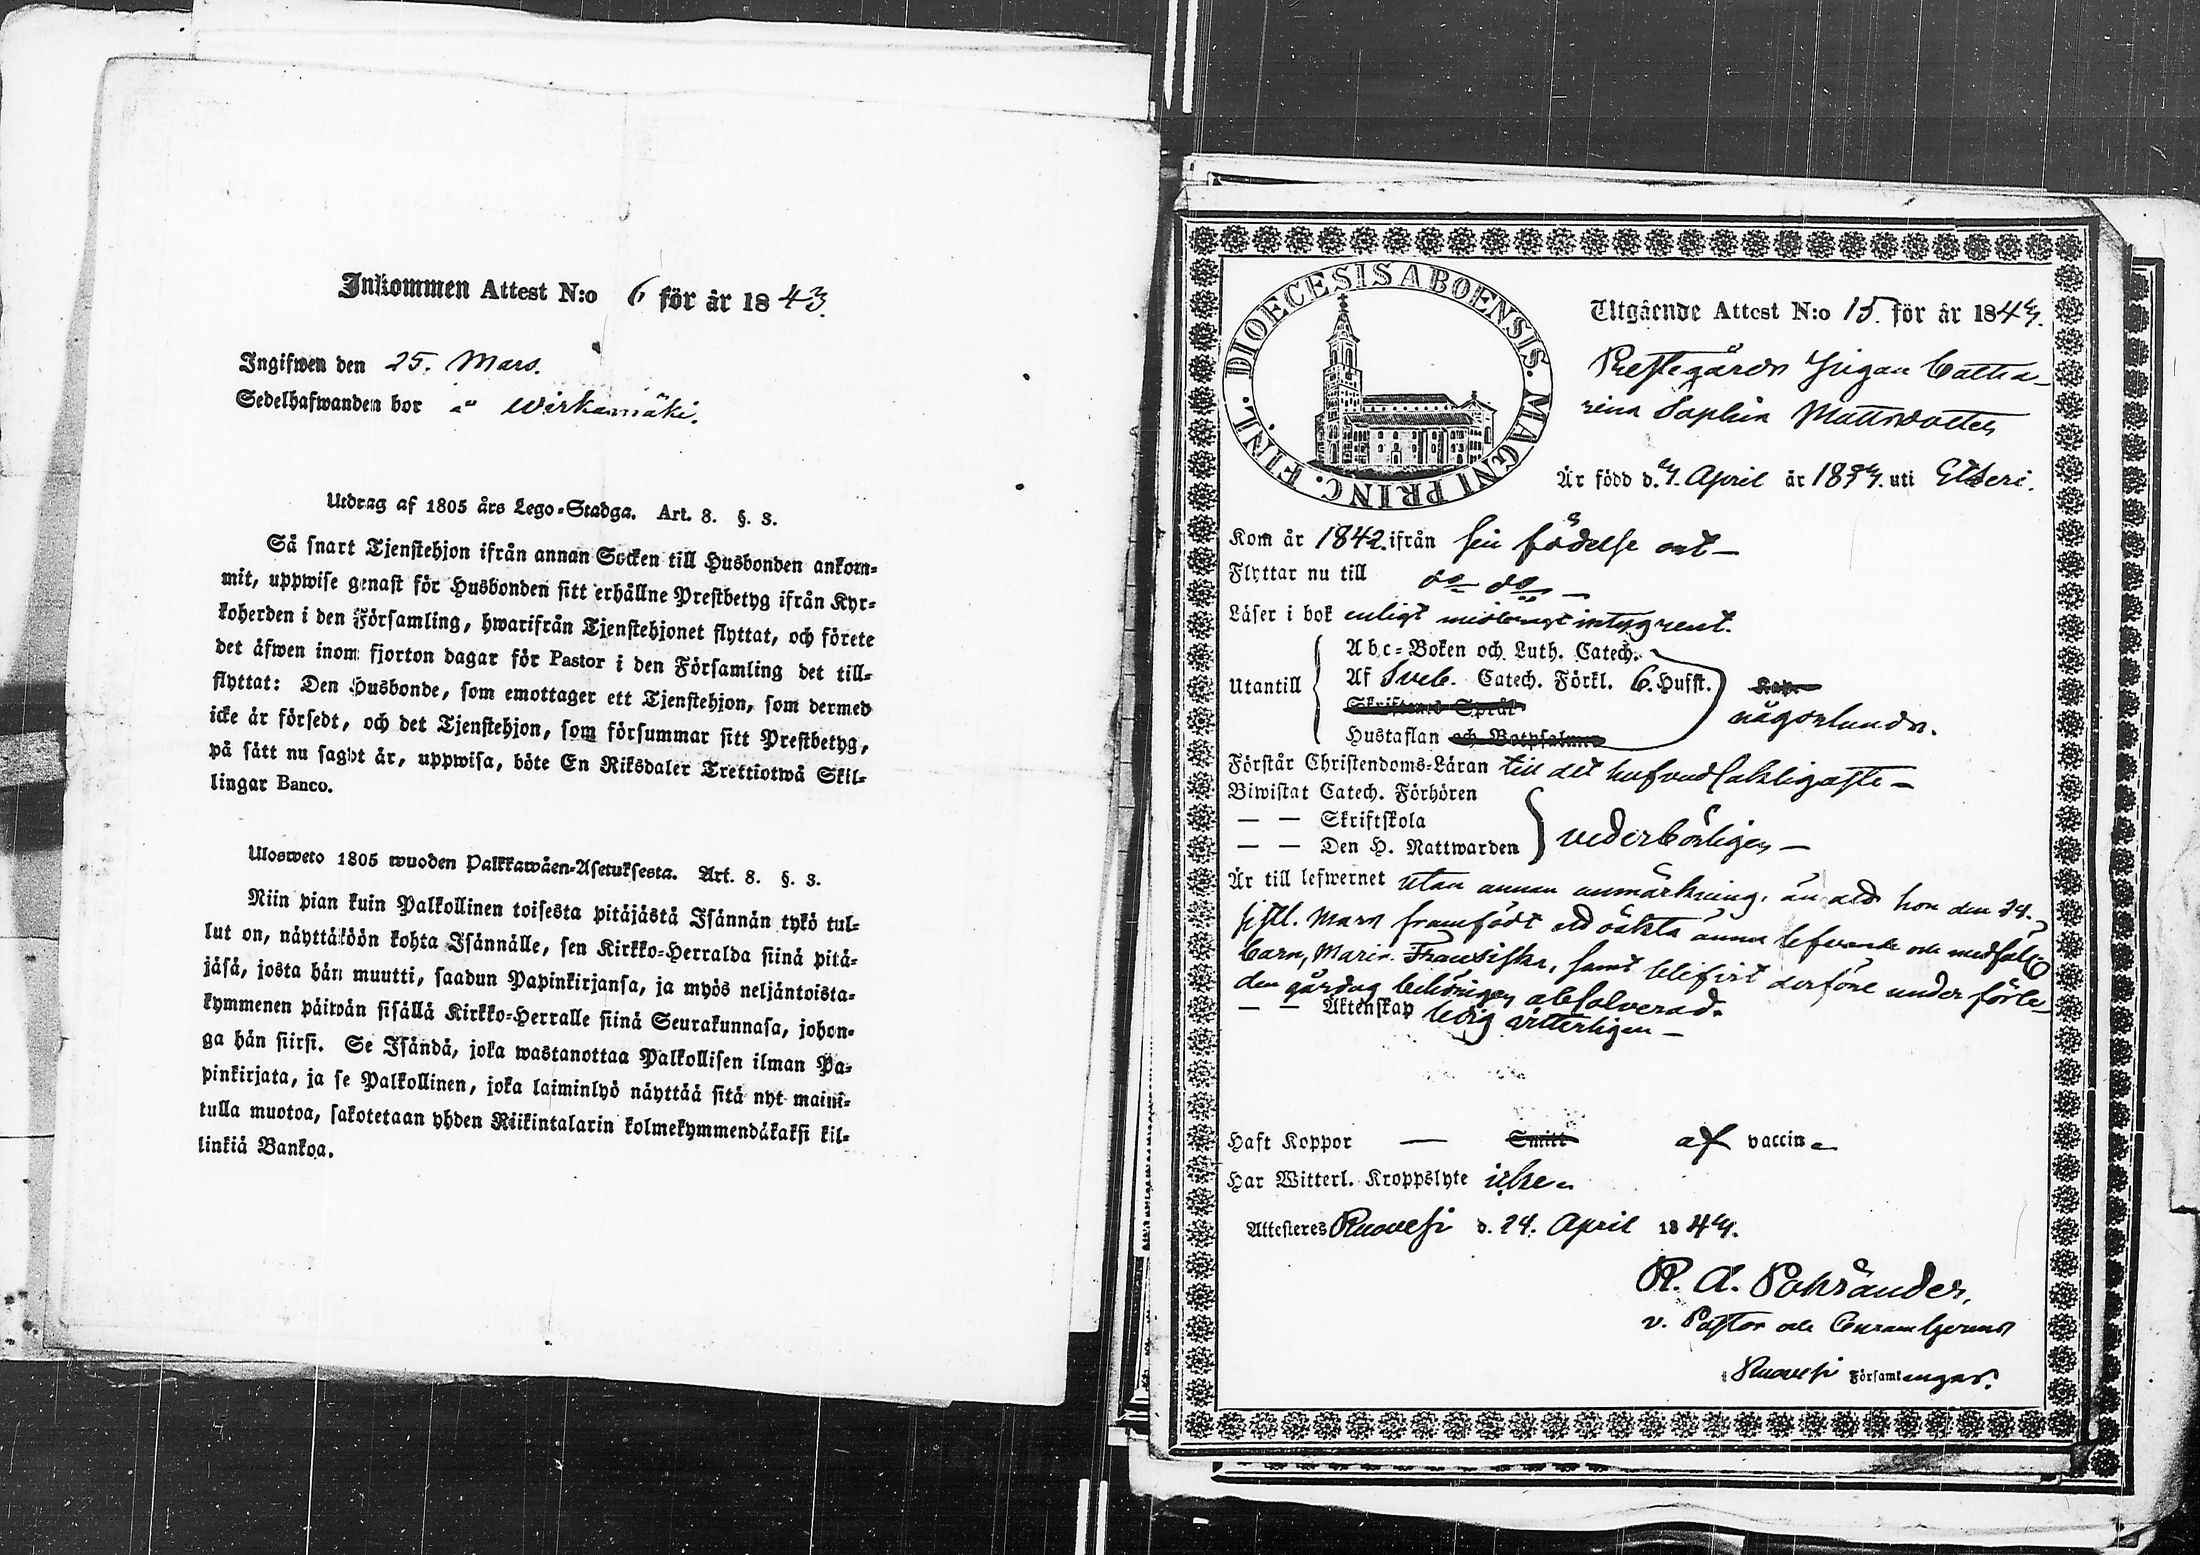 Inkommen Attest N:o 6 för år 1843.
Ingifwen den 25. Mars.
Sedelhafwanden bor å Wirkamäki.
Utdrag af 1805 års Lego-Stadga. Art. 8. §. 3.
Så snart Tjenstehjon ifrån annan Socken till Husbonden ankom-
mit, uppwise genast för Husbonden sitt erhållne Prestbetyg ifrån Kyr-
koherden i den Församling, hwarifrån Tjenstehjonet flyttat, och förete
det äfwen inom fjorton dagar för Pastor i den Församling det till-
flyttat: Den Husbonde, som emottager ett Tjenstehjon, som dermed
icke är försedt, och det Tjenstehjon, som försummar sitt Prestbetyg,
på sätt nu sagdt är, uppwisa, böte En Riksdaler Trettiotwå Skil-
lingar Banco.
Ulosweto 1805 wuoden Palkkawäen-Asetuksesta. Art. 8. §. 3.
Niin pian kuin Palkollinen toisesta pitäjästä Isännän tykö tul-
lut on, näyttäköön kohta Isännälle, sen Kirkko-Herralda siinä pitä-
jäsä, josta hän muutti, saadun Papinkirjansa, ja myös neljäntoista-
kymmenen päiwän sisällä Kirkko-Herralle siinä Seurakunnasa, johon-
ga hän siirsi. Se Isändä, joka wastanottaa Palkollisen ilman Pa-
pinkirjata, ja se Palkollinen, joka laiminlyö näyttää sitä nyt mainit-
tulla muotoa, sakotetaan yhden Riikintalarin kolmekymmendäkaksi kil-
linkiä Bankoa.
DIOECESIS ABOENSIS. MAGNI PRINC. FINL.
Utgående Attest N:o 15. för år 1843.
Prestegårds Pigan Catha-
rina Sophia Mattsdotter
Är född d. April år 18 uti Etseri.
Kom år 1842. ifrån sin födelse ort
Flyttar nu till do do
Läser i bok enligt intyg rent.
Abc-Boken och Luth. Catech.
Utantill Af Sveb. Catech. Förkl. 6. Hufst.
Skriftenes Språk någorlunda.
Hustaflan och Botpsalmer
Förstår Christendoms-Läran till det hufvudsakligaste
Biwistat Catech. Förhören
— — Skriftskola
— — Den H. Nattwarden vederbörligen
Är till lefwernet utan annan anmärkning, än att hon den 24.
sistl. Mars framfödt ett oäkta ännu lefvande och
barn, Maria Fransiska, samt blifvit derföre under förle-
den gårdag behörigen absolverad.
— — Äktenskap ledig vitterligen
Haft Koppor — Smitt af vaccin
Har Witterl. Kroppslyte icke
Attesteres Ruovesi d. 24. April 1843.
v. Pastor och
i Ruovesi Församlingar.